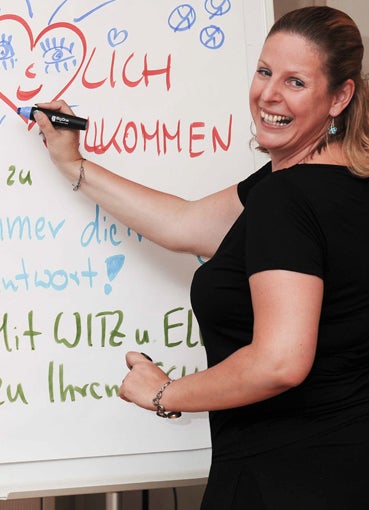 LICH
LLKOMMEN
zu
mmer die
ntwort!
Mit WITZ u. EL
zu Ihrem